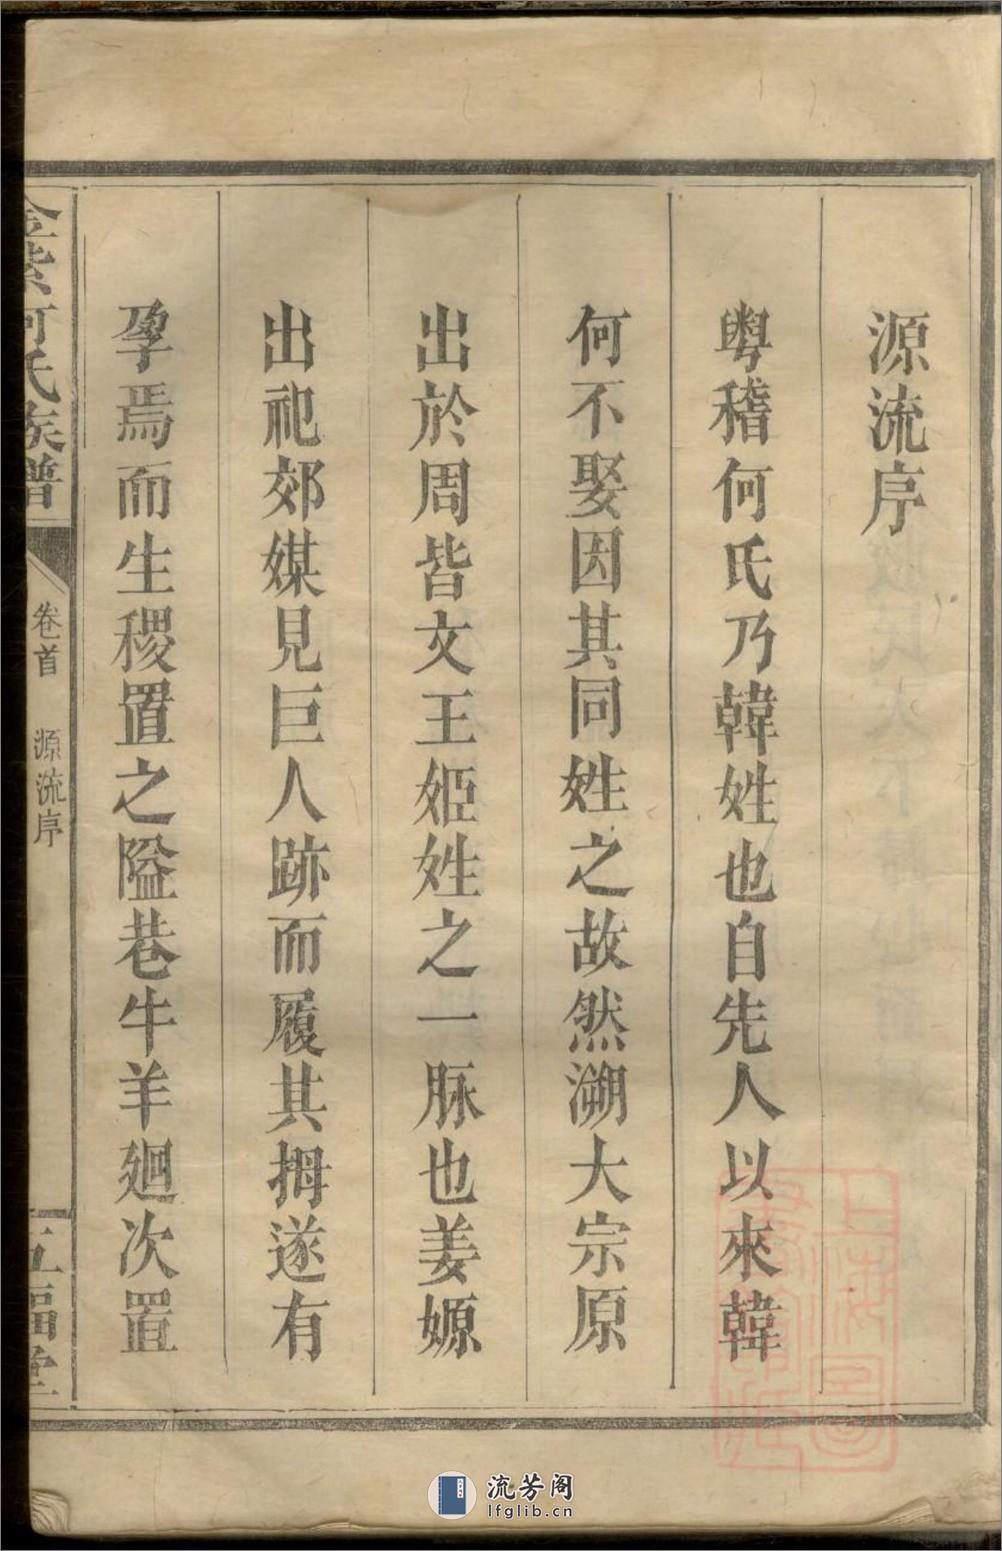 源流序
粤稽何氏乃韓姓也自先人以來韓
何不娶因其同姓之故然溯大宗原
出於周皆文王姬姓之一脉也姜嫄
出祀郊媒見巨人跡而履其拇遂有
孕焉而生稷置之隘巷牛羊廻次置
金紫何氏族譜
卷首
源流序
五福堂
上海圖
流芳阁
lfglib.cn